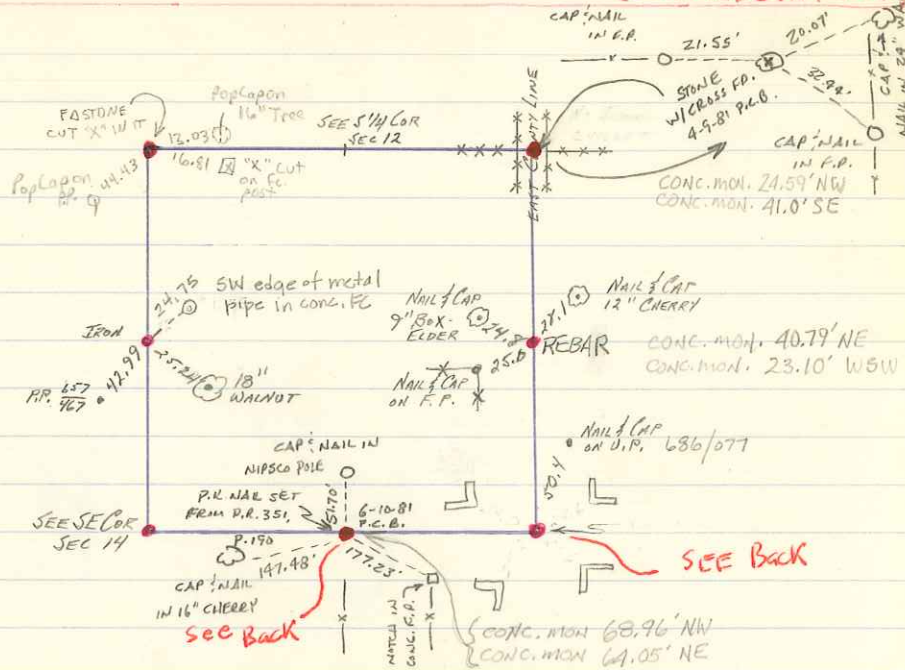 CAP & NAIL
IN F.P.
21.55'
20.07'
CAP &
NAIL IN 24"
STONE
W/CROSS FD.
4-9-81 P.C.B.
32.
CAP & NAIL
IN F.P.
CONC. MON. 24.59' NW
CONC. MON. 41.0' SE
EAST COUNTY LINE
FASTONE
CUT "X" IN IT
Pop Cap on
16" Tree
13.03
SEE S 1/4 COR
SEC 12
16.81 "X" Cut
on Fc.
post
Pop Cap on
P.P.
44.43
24.75
SW edge of metal
pipe in conc. Fc
IRON
42.99
P.P. 657/467
25.24
18"
WALNUT
NAIL & CAP
9" BOX-
ELDER
24.8
25.0
NAIL & CAP
ON F.P.
27.1
NAIL & CAP
12" CHERRY
REBAR
CONC. MON. 40.79' NE
CONC. MON. 23.10' WSW
NAIL & CAP
ON U.P. 686/077
50.4
CAP & NAIL IN
NIPSCO POLE
51.70'
P.K. NAIL SET
FROM D.R. 351,
P. 190
6-10-81
P.C.B.
SEE SE COR
SEC 14
147.48'
177.23'
CAP & NAIL
IN 16" CHERRY
See Back
NOTCH IN
CONC. F.P.
SEE Back
CONC. MON 68.96' NW
CONC. MON 64.05' NE